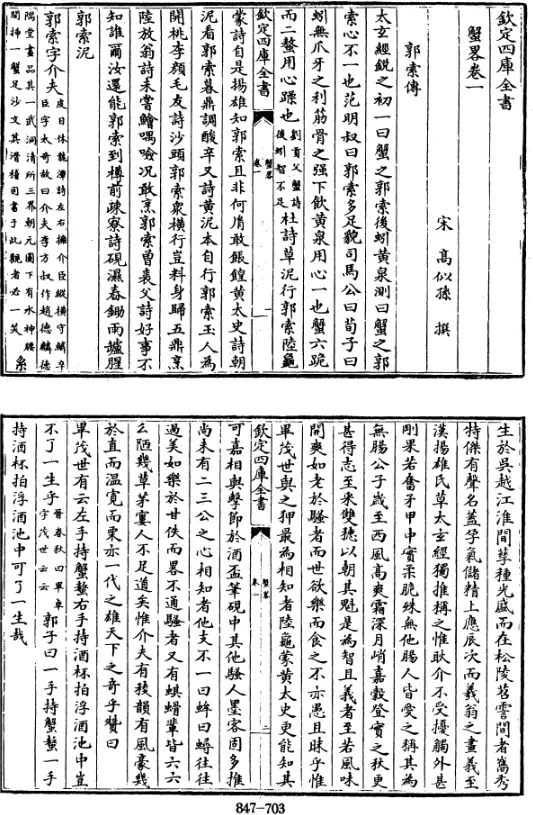 欽定四庫全書
蟹畧卷一
宋 高似孫 撰
郭索傳
太玄經鋭之初一曰蟹之郭索後蚓黄泉測曰蟹之郭
索心不一也范明叔曰郭索多足貌司馬公曰荀子曰
蚓無爪牙之利筋骨之强下飲黄泉用心一也蟹六跪
而二螯用心躁也劉貢父蟹詩後蚓智不足杜詩草泥行郭索陸龜
欽定四庫全書
蟹畧
卷一
一
蒙詩自是揚雄知郭索且非何胤敢餦餭黄太史詩朝
泥看郭索暮鼎調酸辛又詩黄泥本自行郭索玉人為
開桃李顔毛友詩沙頭郭索衆横行豈料身歸五鼎烹
陸放翁詩未嘗鱠喁噞况敢烹郭索曾裘父詩好事不
知誰爾汝還能郭索到樽前疎寮詩硯濕春鋤雨罏腥
郭索泥
郭索字介夫皮日休龍潭詩左右擁介臣縱横守鱗卒臣字太奇故曰介夫李方叔作趙德麟德
隅堂畫品其一武洞清所三界朝元圖下有水神腰間插一蟹足沙文其滑稽因書于此觀者必一笑系
生於吴越江淮間孽種光盛而在松陵苕霅間者嶲秀
特傑有聲名蓋孕氣儲精上應辰次而羲翁之畫義至
漢揚雄氏草太玄經獨推稱之惟耿介不受擾觸外甚
剛果若奮矛甲中實柔脆殊無他腸人皆愛之稱其為
無腸公子歲至西風高爽霜深月峭嘉穀登實之秋更
甚得志至采雙穗以朝其魁是為智且義者至若風味
闓爽如老於騷者而世欲樂而食之不亦愚且昧乎惟
畢茂世與之狎最為相知者陸龜蒙黄太史更能知其
欽定四庫全書
蟹畧
卷一
二
可嘉相與擊節於酒盃筆硯中其他騷人墨客固多推
尚未有二三公之心相知者他支不一曰蛑曰蟳往往
過美如樂於甘佚而畧不通騷者又有蜞蝟輩皆六六
么陋幾草茅寠人不足道矣惟介夫有稜韻有風豪幾
於直而溫寛而栗亦一代之雄天下之奇乎贊曰
畢茂世有云左手持蟹螯右手持酒杯拍浮酒池中豈
不了一生乎晉春秋曰畢卓字茂世云云郭子曰一手持蟹螯一手
持酒杯拍浮酒池中可了一生哉
847-703